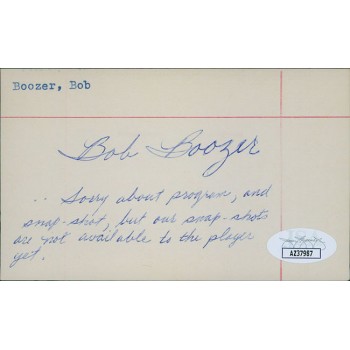 Boozer, Bob
Bob Boozer
.. Sorry about program, and
snap-shot, but our snap-shots
are not available to the player
yet.
AZ37987